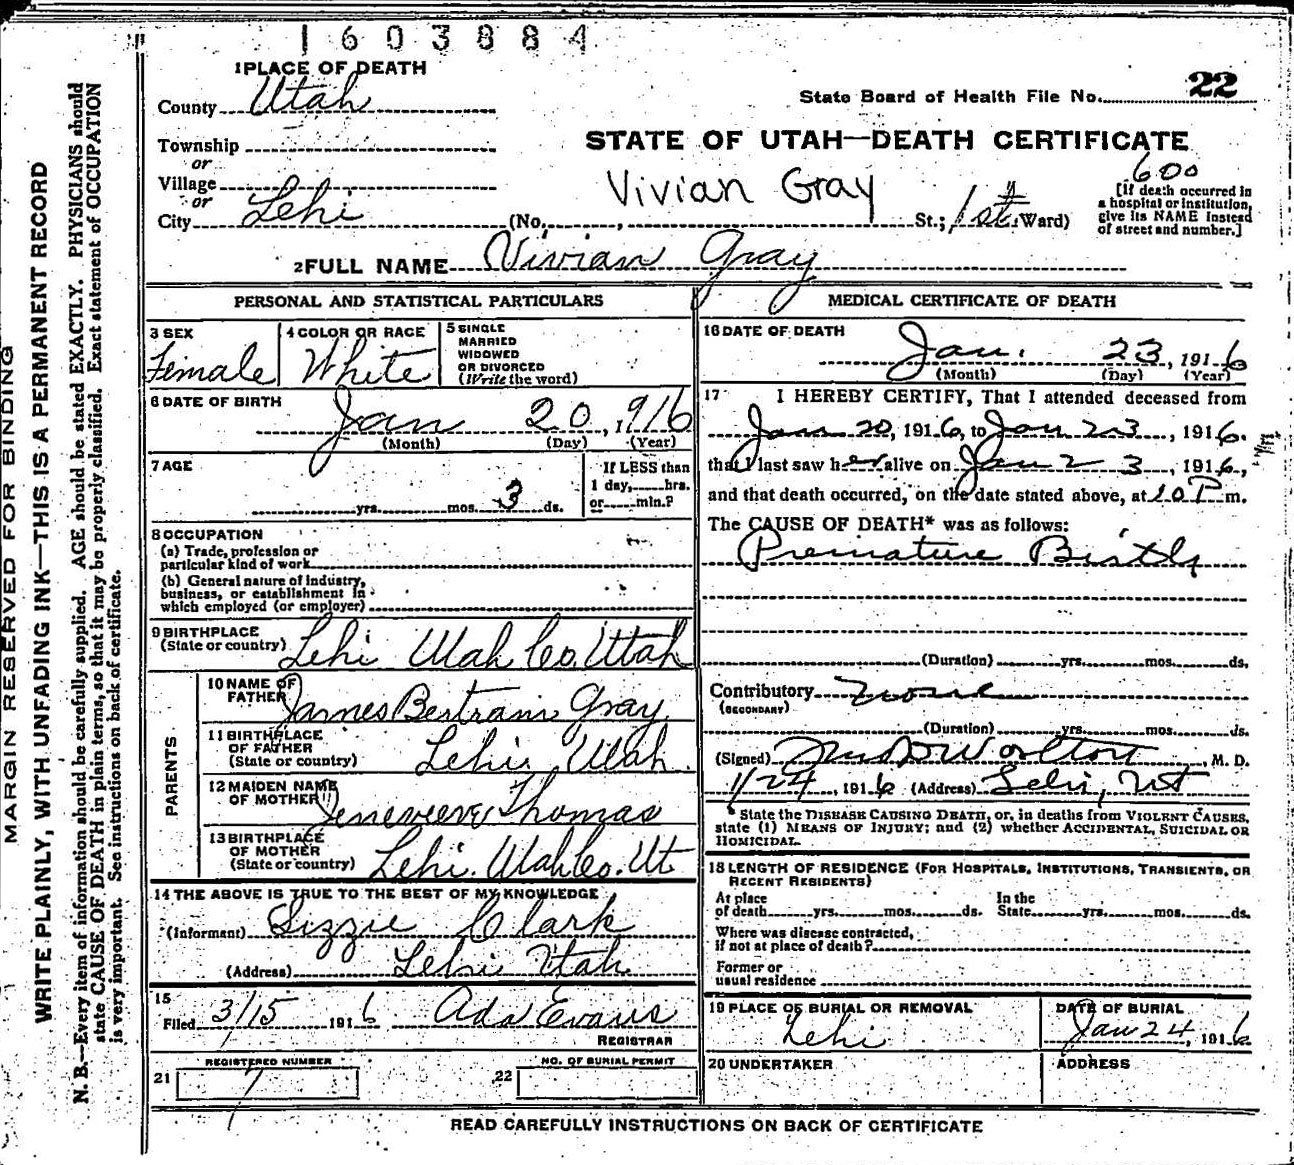 1603884
1 PLACE OF DEATH
County Utah
State Board of Health File No. 22
Township
or
Village
or
City Lehi
STATE OF UTAH—DEATH CERTIFICATE
Vivian Gray
600
(No. , St.; 1st Ward)
[If death occurred in
a hospital or institution,
give its NAME instead
of street and number.]
2 FULL NAME Vivian Gray
PERSONAL AND STATISTICAL PARTICULARS
3 SEX
Female
4 COLOR OR RACE
White
5 SINGLE
MARRIED
WIDOWED
OR DIVORCED
(Write the word)
6 DATE OF BIRTH
Jan 20, 916
(Month) (Day) (Year)
7 AGE
yrs. mos. 3 ds.
If LESS than
1 day, hrs.
or min.?
8 OCCUPATION
(a) Trade, profession or
particular kind of work
(b) General nature of industry,
business, or establishment in
which employed (or employer)
9 BIRTHPLACE
(State or country) Lehi Utah Co. Utah
PARENTS
10 NAME OF
FATHER James Bertram Gray
11 BIRTHPLACE
OF FATHER
(State or country) Lehi Utah.
12 MAIDEN NAME
OF MOTHER Genevieve Thomas
13 BIRTHPLACE
OF MOTHER
(State or country) Lehi. Utah Co. Ut.
14 THE ABOVE IS TRUE TO THE BEST OF MY KNOWLEDGE
(Informant) Lizzie Clark
(Address) Lehi Utah
15
Filed 3/15 1916 Ada Evans
REGISTRAR
REGISTERED NUMBER
21 7
NO. OF BURIAL PERMIT
22
MEDICAL CERTIFICATE OF DEATH
16 DATE OF DEATH
Jan. 23, 1916
(Month) (Day) (Year)
17 I HEREBY CERTIFY, That I attended deceased from
Jan 20, 1916, to Jan 23, 1916.
that I last saw her alive on Jan 23, 1916,
and that death occurred, on the date stated above, at 10 P m.
The CAUSE OF DEATH* was as follows:
Premature Birth
(Duration) yrs. mos. ds.
Contributory None
(SECONDARY)
(Duration) yrs. mos. ds.
(Signed) Worlton, M. D.
1/24, 1916 (Address) Lehi, Ut
* State the DISEASE CAUSING DEATH, or, in deaths from VIOLENT CAUSES,
state (1) MEANS OF INJURY; and (2) whether ACCIDENTAL, SUICIDAL OR
HOMICIDAL.
18 LENGTH OF RESIDENCE (FOR HOSPITALS, INSTITUTIONS, TRANSIENTS, OR
RECENT RESIDENTS)
At place
of death yrs. mos. ds.
In the
State yrs. mos. ds.
Where was disease contracted,
if not at place of death?
Former or
usual residence
19 PLACE OF BURIAL OR REMOVAL
Lehi
DATE OF BURIAL
Jan 24, 1916
20 UNDERTAKER
ADDRESS
READ CAREFULLY INSTRUCTIONS ON BACK OF CERTIFICATE
MARGIN RESERVED FOR BINDING
WRITE PLAINLY, WITH UNFADING INK—THIS IS A PERMANENT RECORD
N. B.—Every item of information should be carefully supplied. AGE should be stated EXACTLY. PHYSICIANS should
state CAUSE OF DEATH in plain terms, so that it may be properly classified. Exact statement of OCCUPATION
is very important. See instructions on back of certificate.